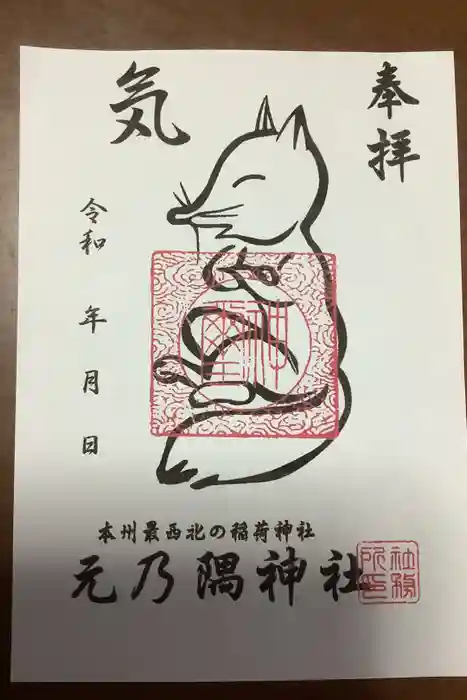 奉拝
気
令和 年 月 日
本州最西北の稲荷神社
元乃隅神社
社務
所印